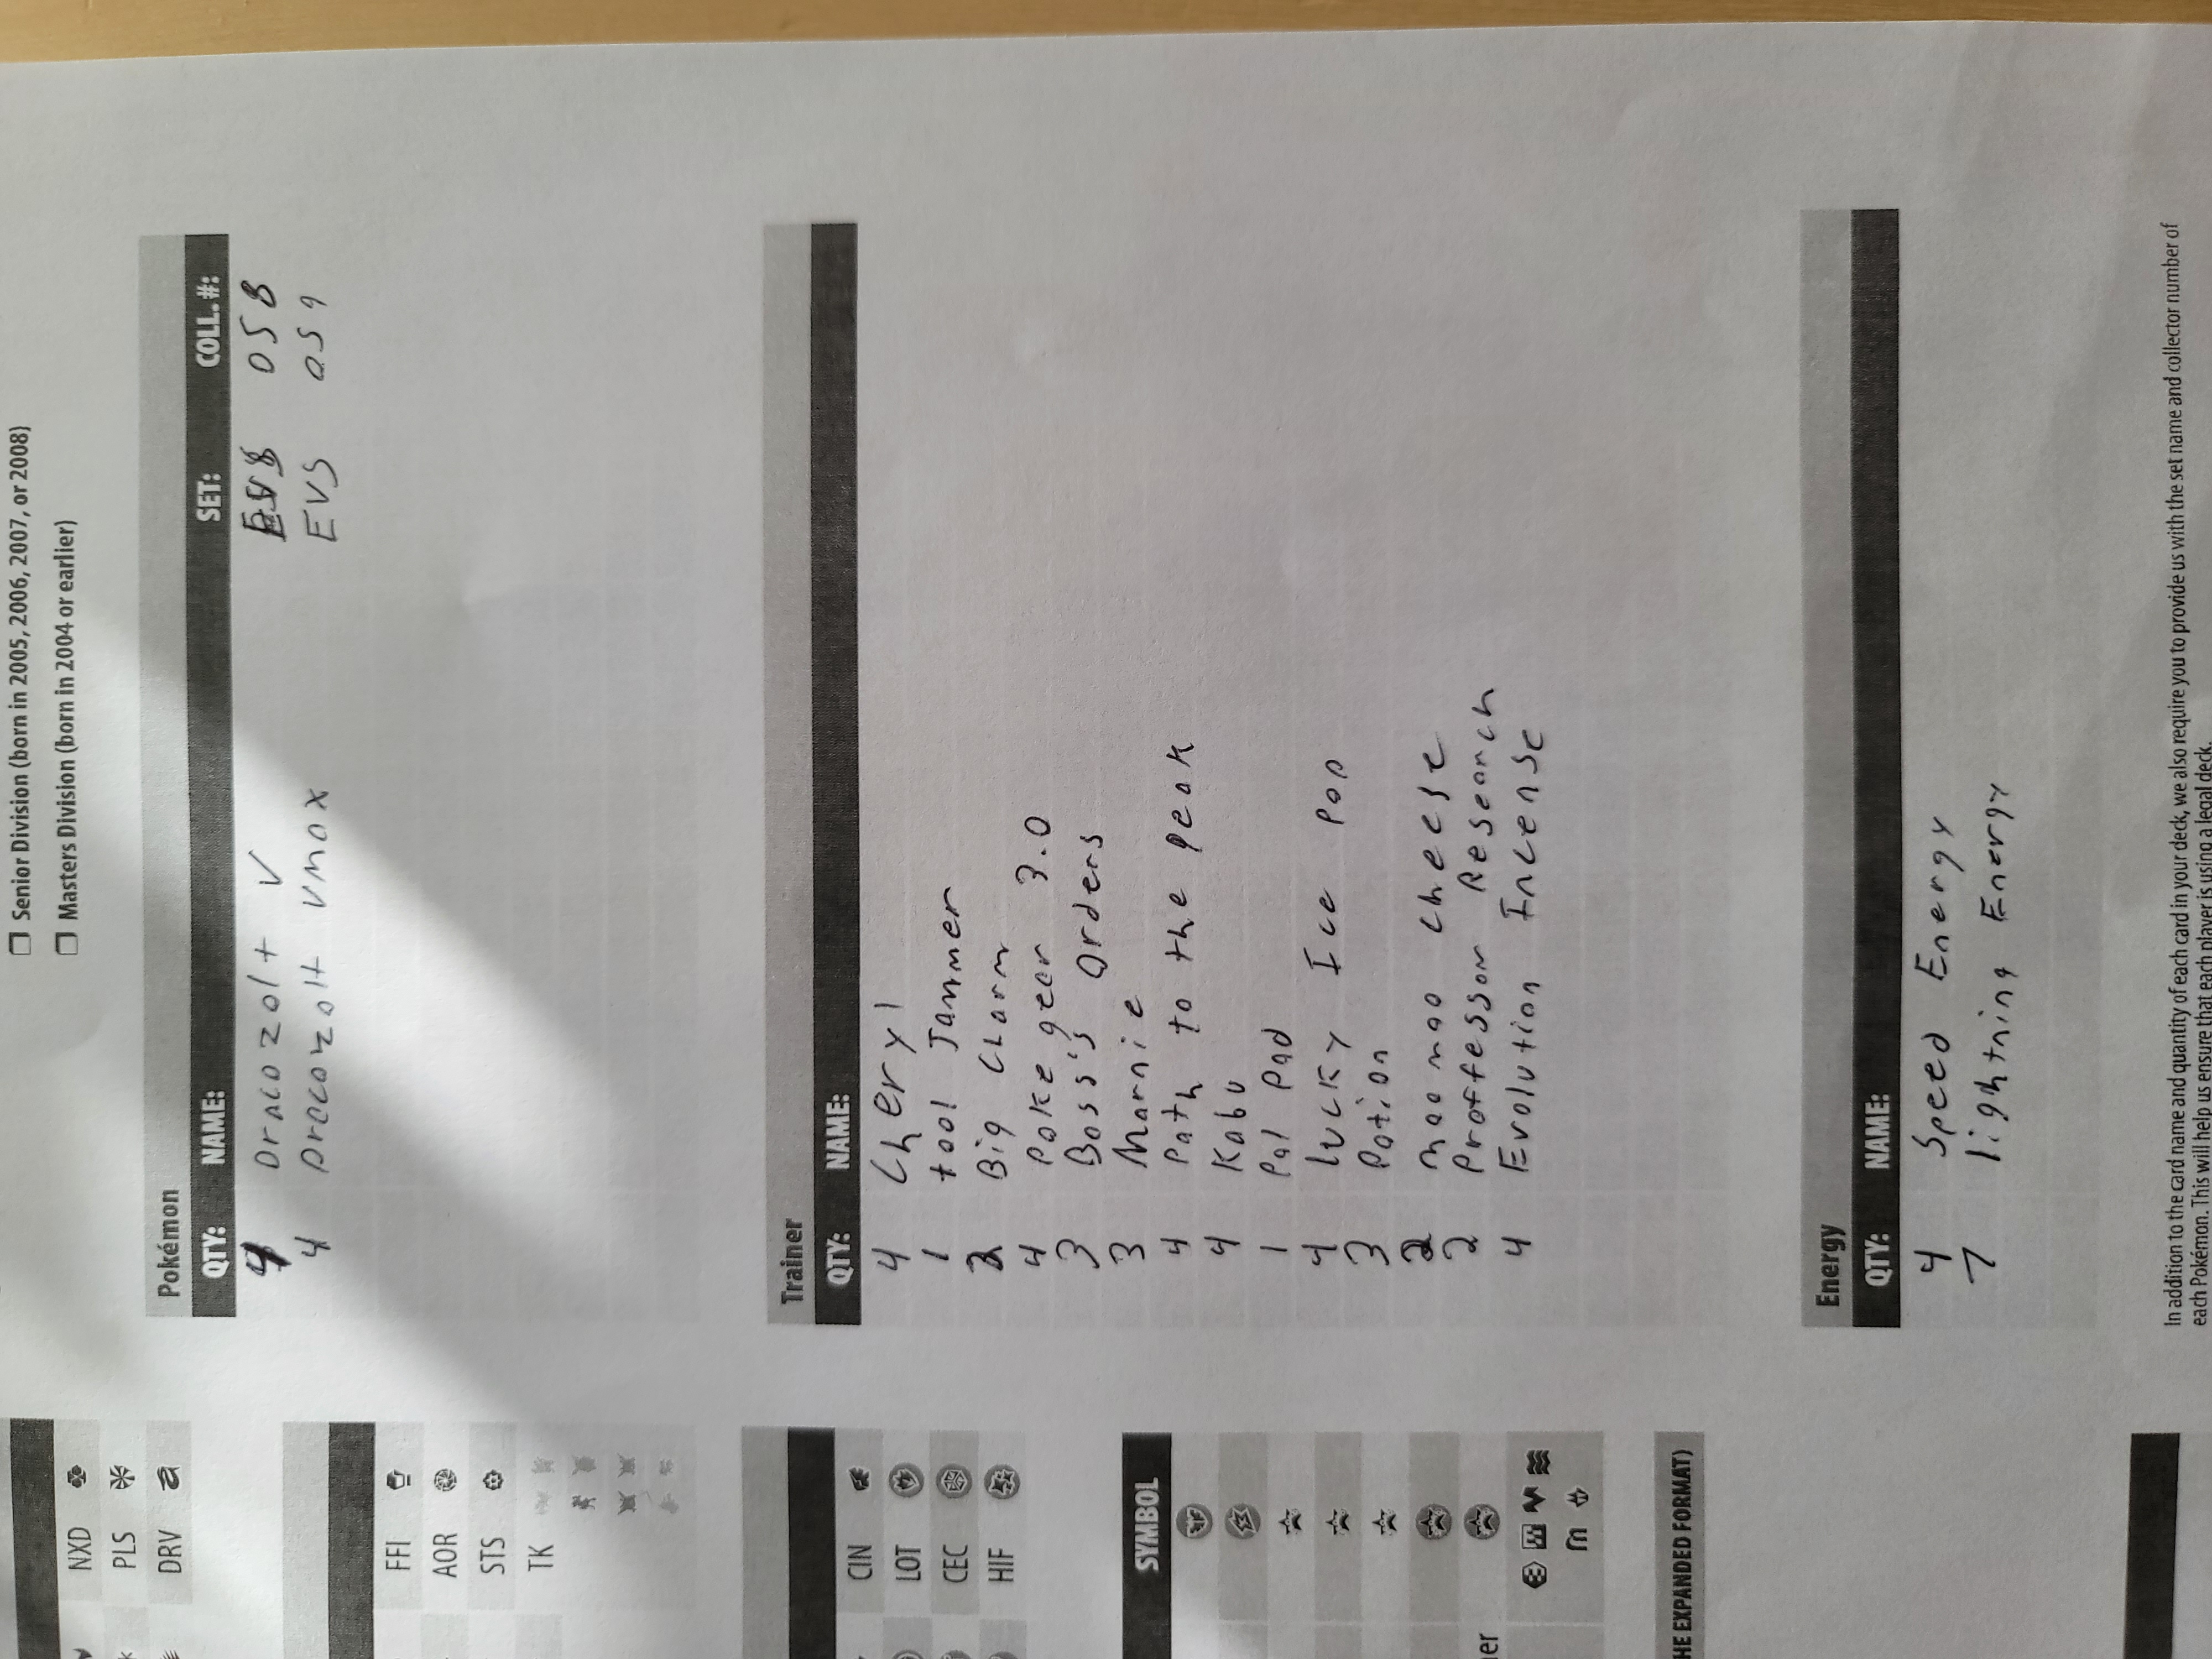 Senior Division (born in 2005, 2006, 2007, or 2008)
Masters Division (born in 2004 or earlier)
NXD
PLS
DRV
FFI
AOR
STS
TK
CIN
LOT
CEC
HIF
SYMBOL
ner
HE EXPANDED FORMAT)
Pokémon
QTY: NAME: SET: COLL. #:
4 Dracozolt V EVS 058
4 Draconzolt VMAX EVS 059
Trainer
QTY: NAME:
4 Cheryl
1 tool Jammer
2 Big Charm
4 Poke gear 3.0
3 Boss's Orders
3 Marnie
4 Path to the peak
4 Kabu
1 Pal Pad
4 lucky Ice pop
3 Potion
2 moo moo cheese
2 Proffessor Research
4 Evolution Incense
Energy
QTY: NAME:
4 Speed Energy
7 lightning Energy
In addition to the card name and quantity of each card in your deck, we also require you to provide us with the set name and collector number of
each Pokémon. This will help us ensure that each player is using a legal deck.